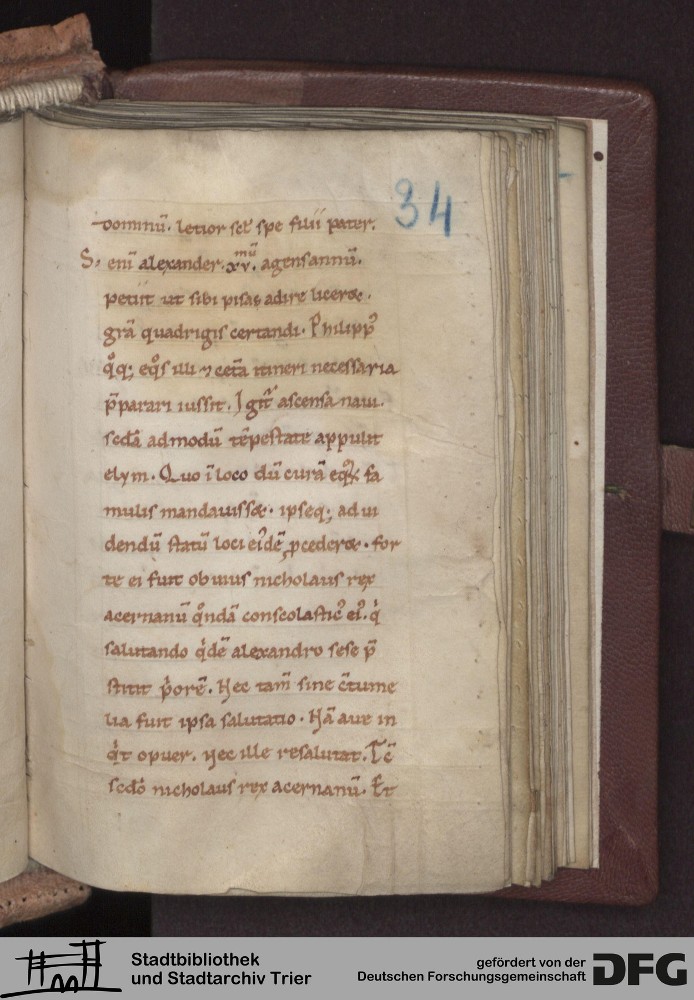 34
dominū. letior scł spe filii pater.
S. eni alexander .xv.mū agensannū.
petiit ut sibi pisas adire liceret.
grā quadrigis certandi. Philippꝰ
qꝫ; eqͦs illi ⁊ cetā itineri necessaria
p̄parari iussit. Igit᷑ ascensa naui.
scdā admodū tēpestate appulit
elym. Quo ī loco dū curā eqꝝ fa
mulis mandauisset. ipseq; ad ui
dendū statū loci eiꝰdē ꝓcederet. for
te ei fuit obuius nicholaus rex
acernanū qͦndā conscolasticꝰ eiꝰ. qi
salutando qͥdē alexandro sese p̄
stitit pͥorē. Hec tam̄ sine c̄tume
lia fuit ipsa salutatio. Nā aue in
qͥt opuer. Hec ille resalutat. Tc̄
scdo nicholaus rex acernanū. Et
Stadtbibliothek
und Stadtarchiv Trier
gefördert von der
Deutschen Forschungsgemeinschaft
DFG